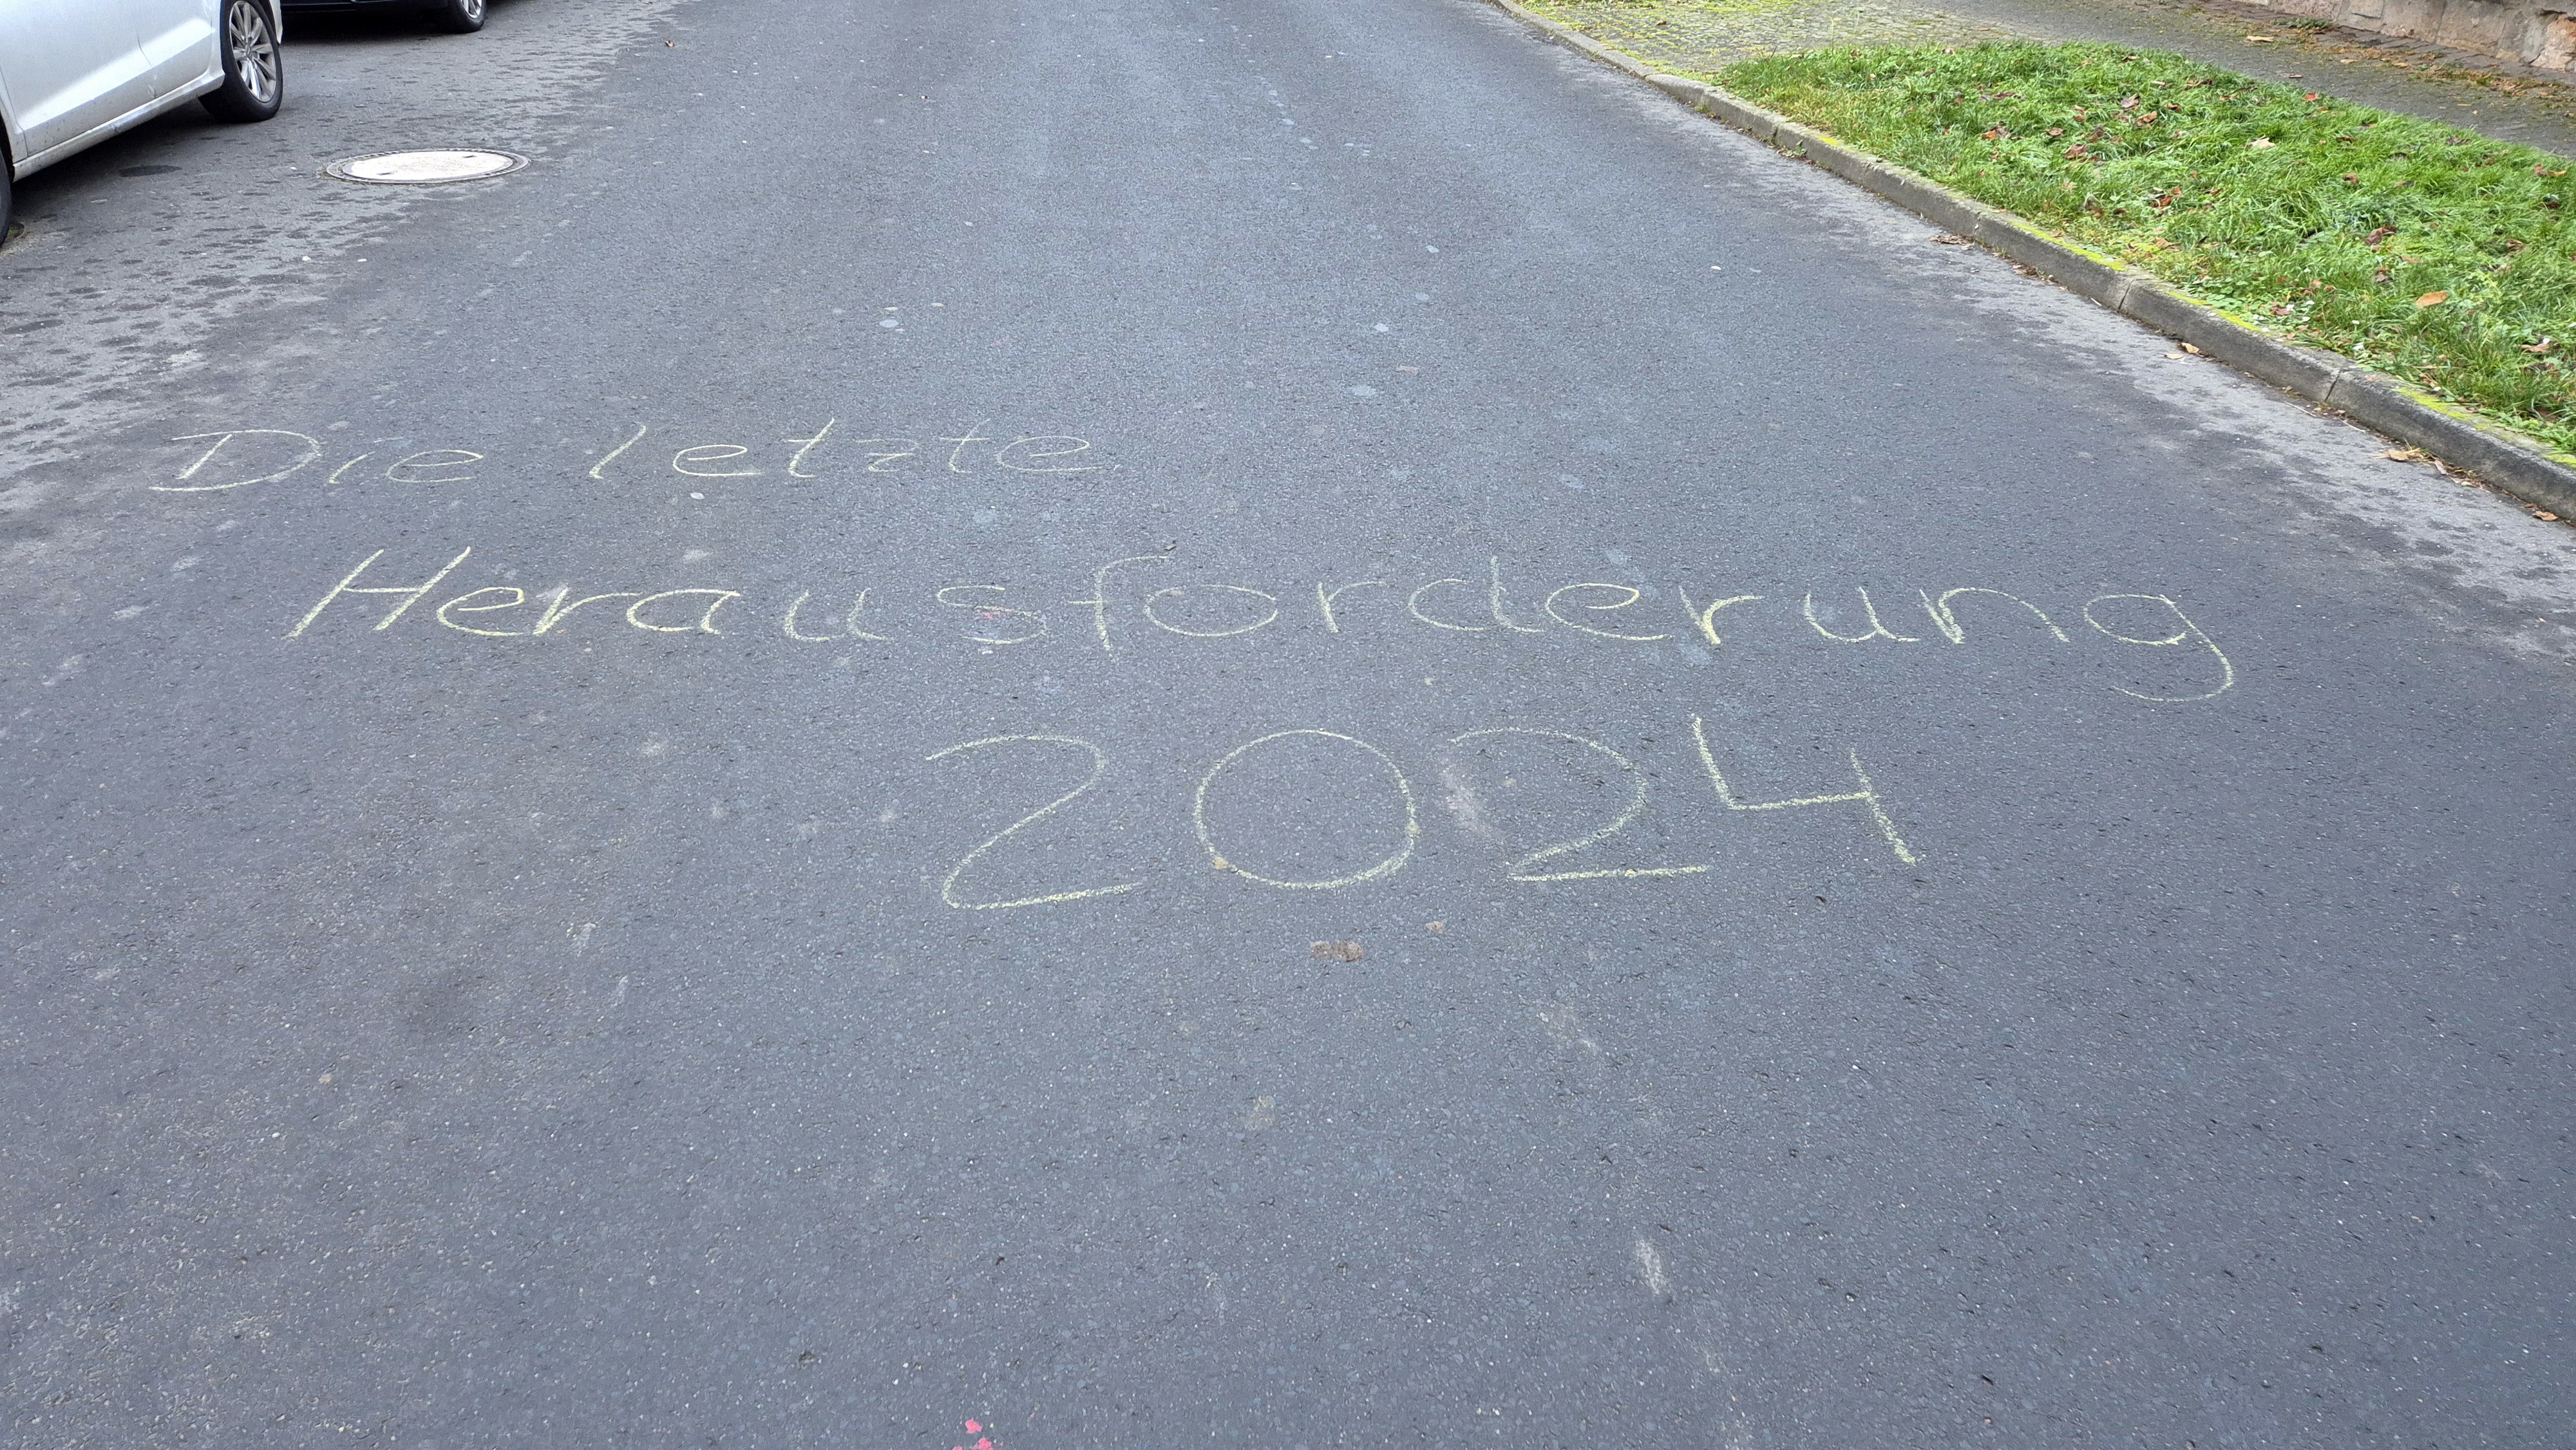 Die letzte
Herausforderung
2024